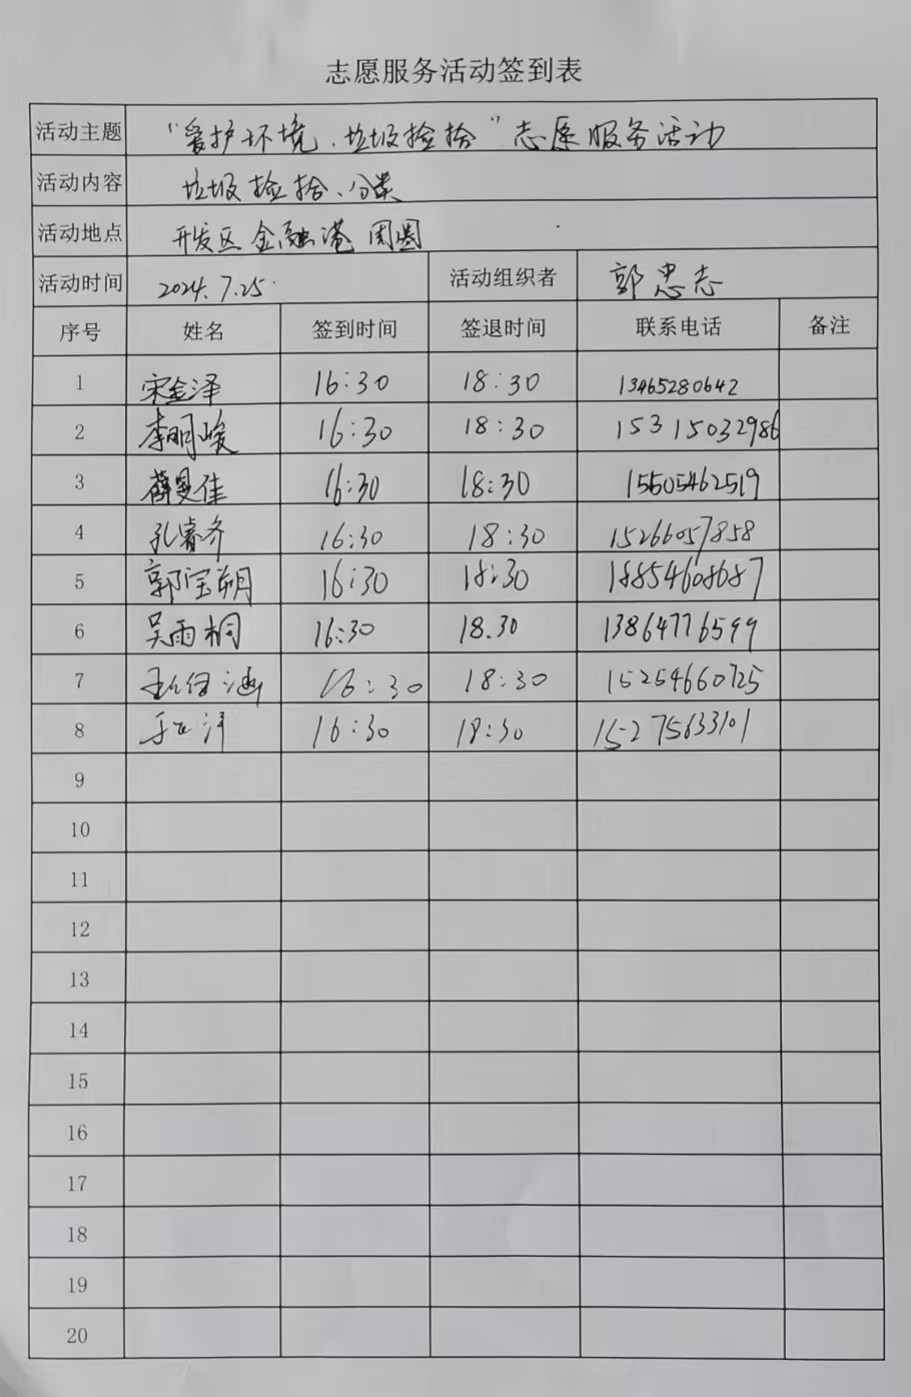 志愿服务活动签到表
活动主题 "爱护环境、垃圾捡拾"志愿服务活动
活动内容 垃圾捡拾、分类
活动地点 开发区金融港周围
活动时间 2024.7.25 活动组织者 郭忠志
序号 姓名 签到时间 签退时间 联系电话 备注
1 宋金泽 16:30 18:30 13465280642
2 李明峻 16:30 18:30 15315032986
3 薛曼佳 16:30 18:30 15505462519
4 孔睿齐 16:30 18:30 15266057858
5 郭宝朔 16:30 18:30 18854608687
6 吴雨桐 16:30 18.30 13864776599
7 16:30 18:30 15254660725
8 16:30 18:30 15275633101
9
10
11
12
13
14
15
16
17
18
19
20